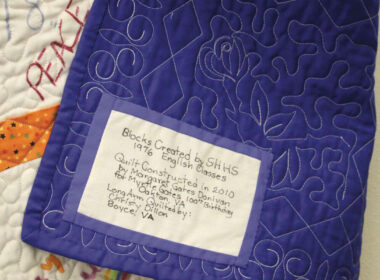 PEACE
Blocks Created by SHHS
1976 English Classes
Quilt Constructed in 2010
by Margaret Gates Donivan
for Myrtle Gates 100th Birthday
Oakton, VA
Long Arm Quilted by:
Christy Dillon
Boyce, VA